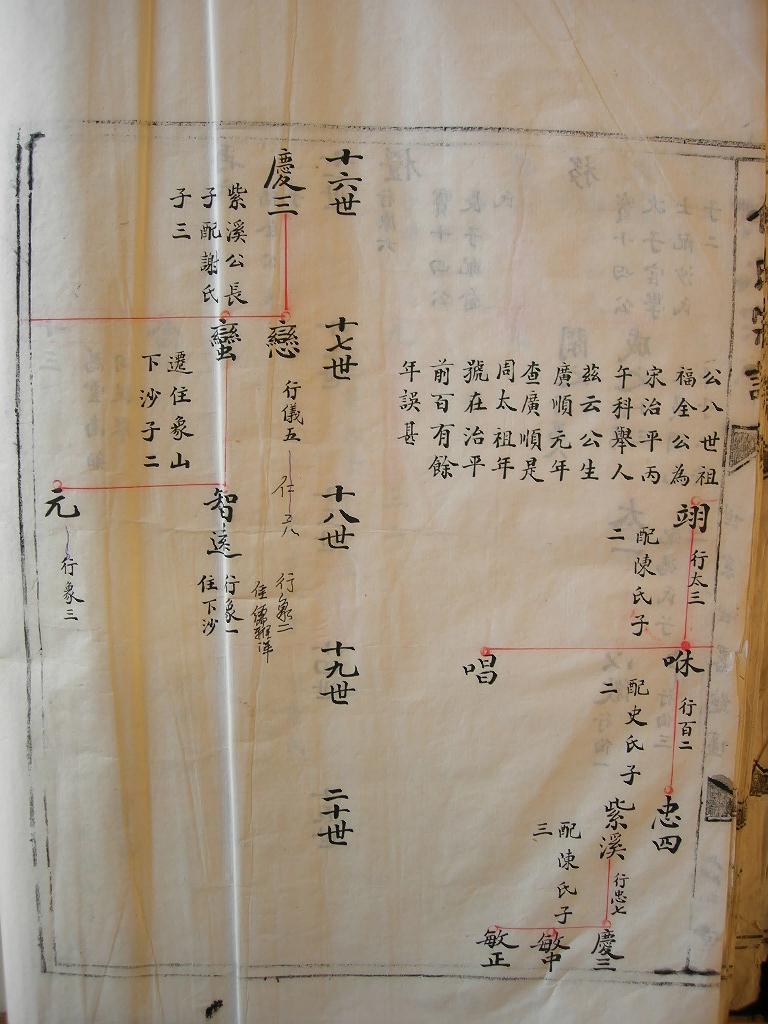 公八世祖
福全公為
宋治平丙
午科舉人
茲云公生
廣順元年
查廣順是
周太祖年
號在治平
前百有餘
年誤甚
翊
行太三
配陳氏子
二
咻
行百二
唱
配史氏子
二
忠四
紫溪
行忠七
配陳氏子
三
慶三
敏中
敏正
十六世
十七世
十八世
十九世
二十世
慶三
紫溪公長
子配謝氏
子三
戀
行儀五
蠻
遷住象山
下沙子二
智遠
行象一
住下沙
行象二
元
行象三